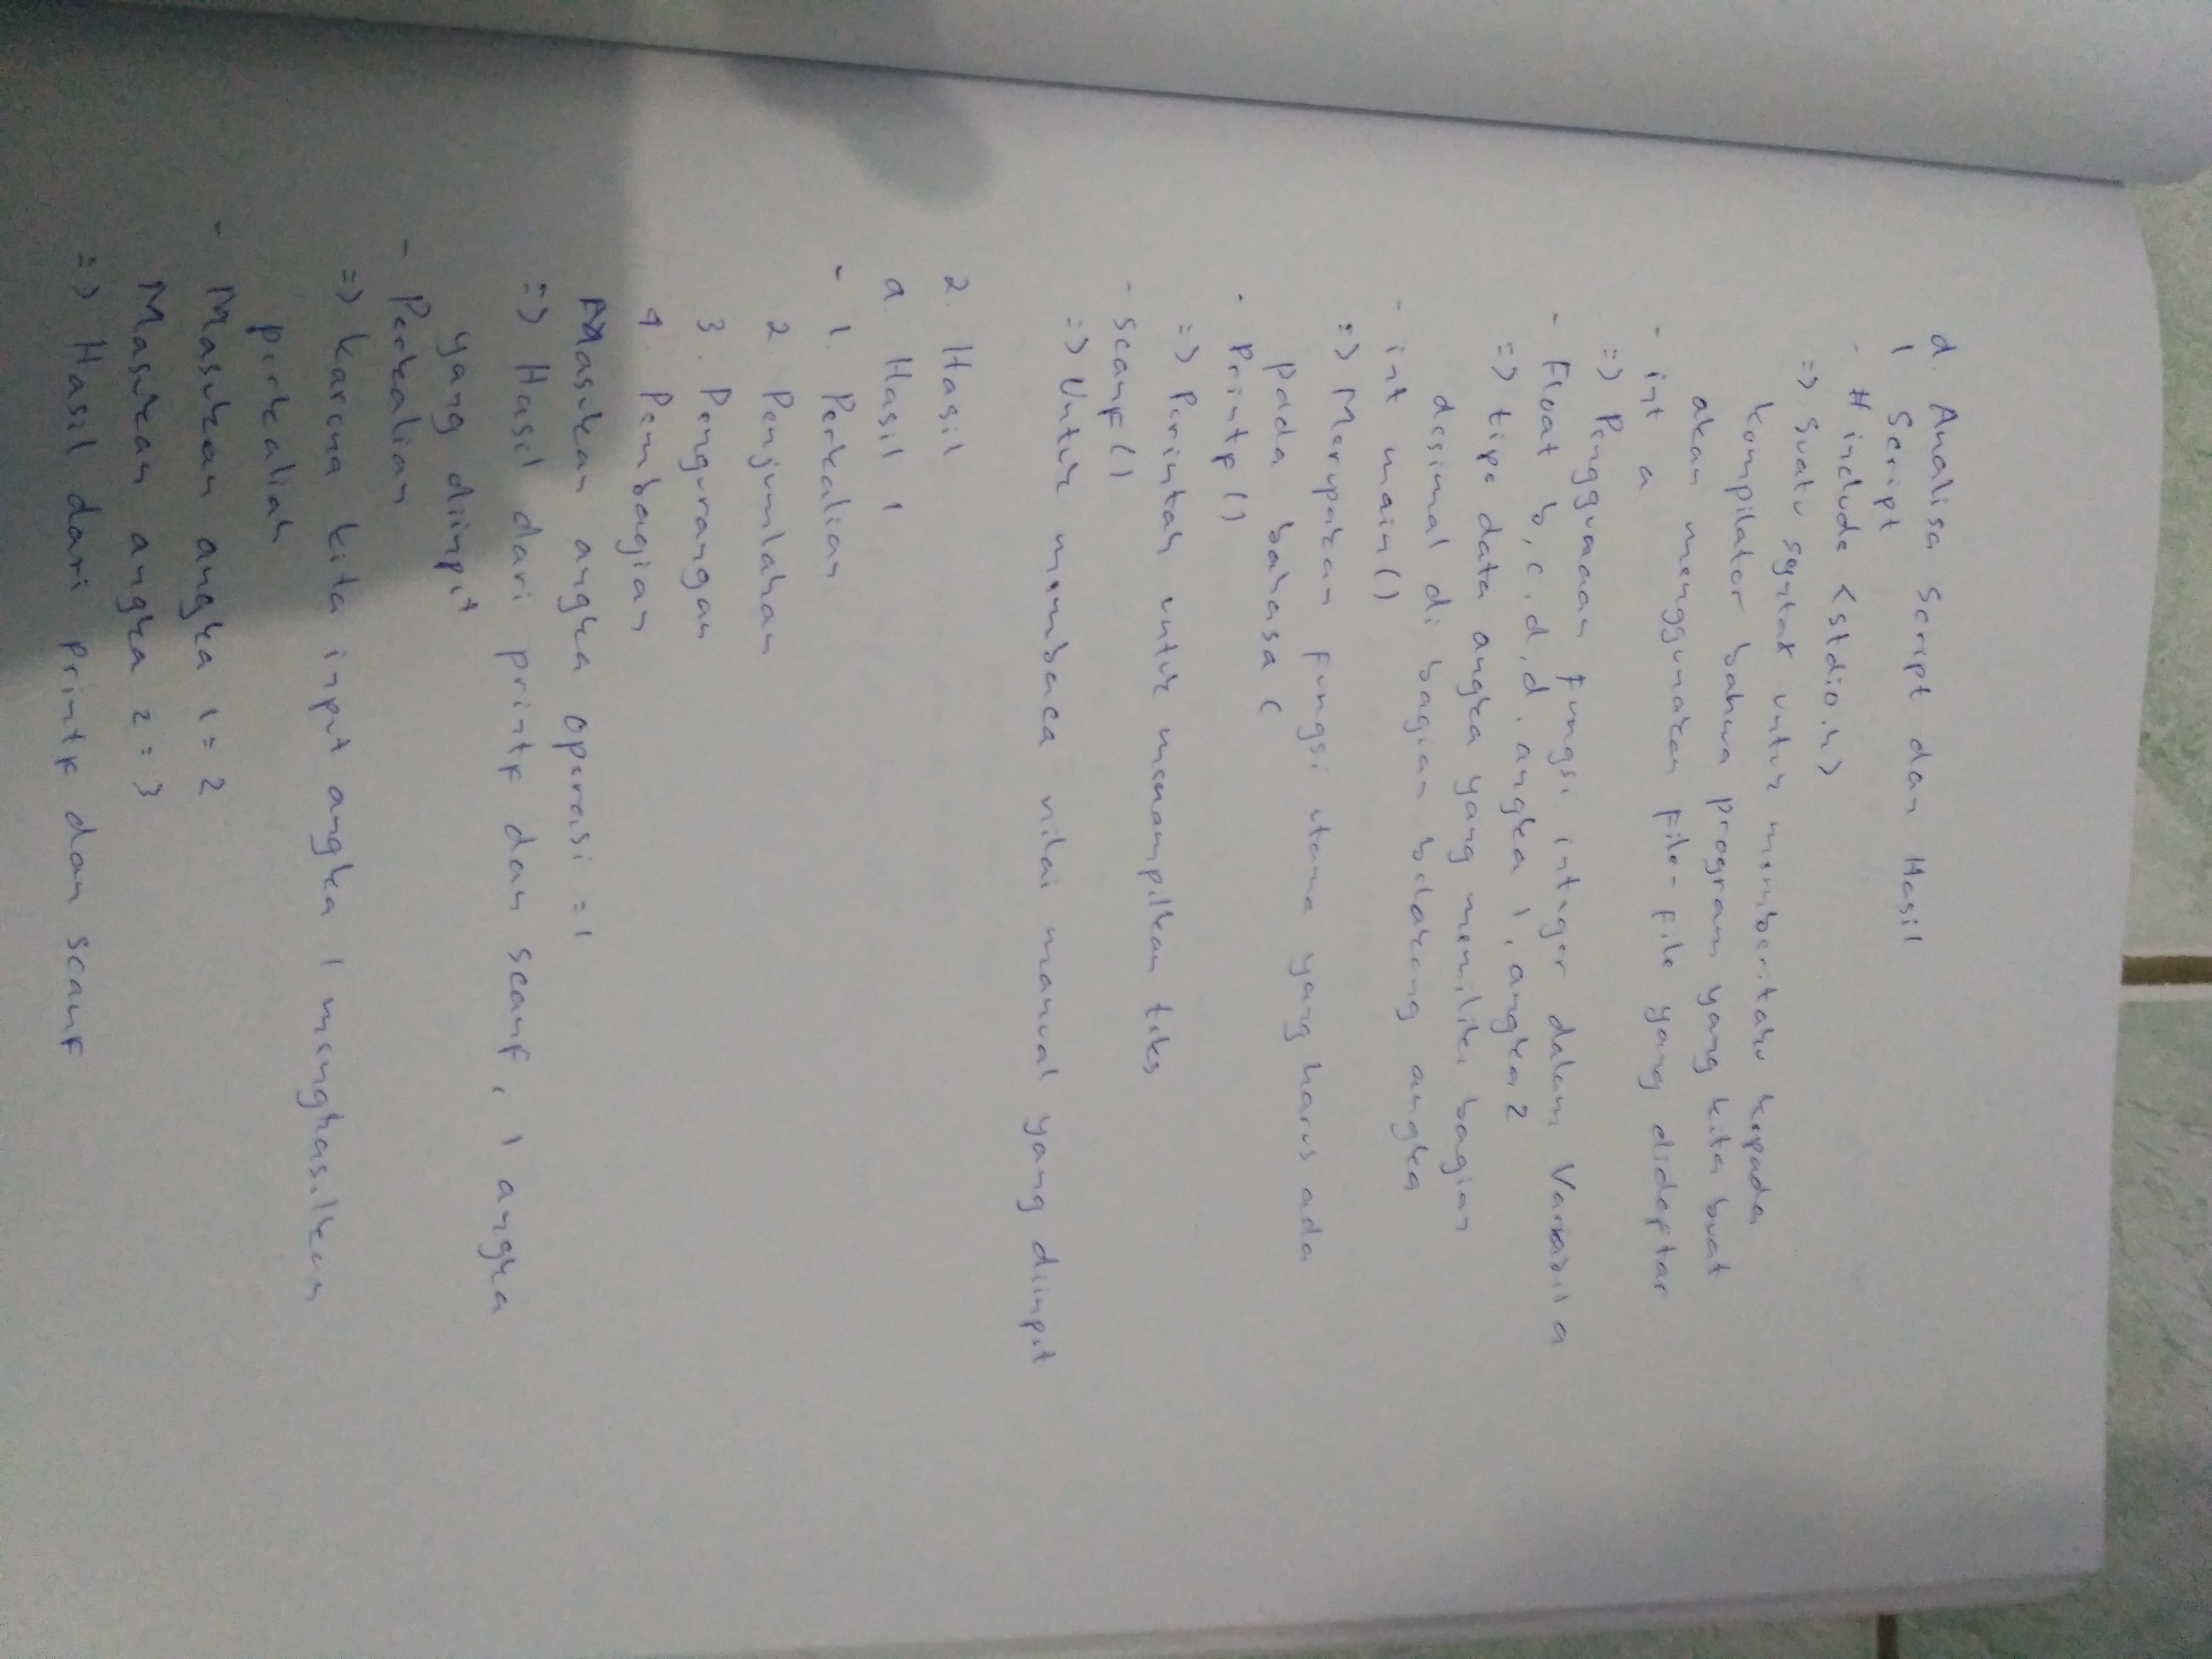 d. Analisa Script dan Hasil
1 Script
- # include <stdio.h>
=> Suatu syntax untuk memberitahu kepada
kompilator bahwa program yang kita buat
akan menggunakan file-file yang didaftar
- int a
=> Penggunaan fungsi integer dalam Variabel a
- Float b, c, d, d. angka 1, angka 2
=> tipe data angka yang memiliki bagian
desimal di bagian belakang angka
- int main()
=> Merupakan fungsi utama yang harus ada
pada bahasa C
- Printf ()
=> Perintah untuk menampilkan teks
- scanf ()
=> Untuk membaca nilai manual yang diinput
2. Hasil
a. Hasil 1
- 1. Perkalian
2 Penjumlahan
3. Pengurangan
4. Pembagian
Masukan angka operasi = 1
=> Hasil dari printf dan scanf, 1 angka
yang diinput
- Perkalian
=> karena kita input angka 1 menghasilkan
perkalian
- Masukan angka 1 = 2
Masukan angka 2 = 3
=> Hasil dari printf dan scanf